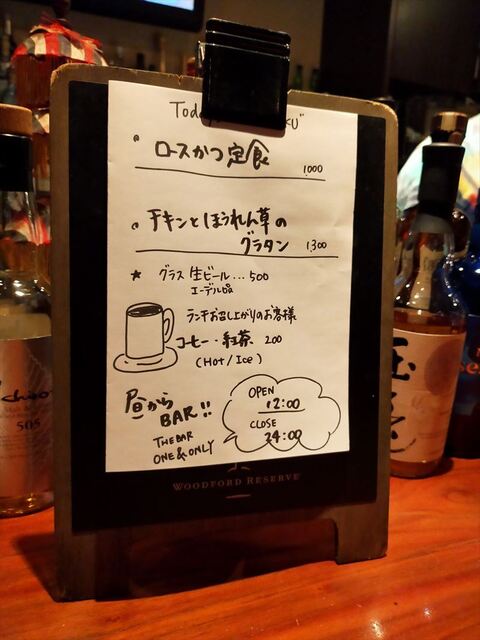 Today
ロースかつ定食
1,000
チキンとほうれん草の
グラタン 1,300
★ グラス 生ビール…500
エーデルピルス
ランチお召し上がりのお客様
コーヒー・紅茶 200
(Hot / Ice)
昼から
BAR!!
THE BAR
ONE & ONLY
OPEN
12:00
CLOSE
24:00
WOODFORD RESERVE
505